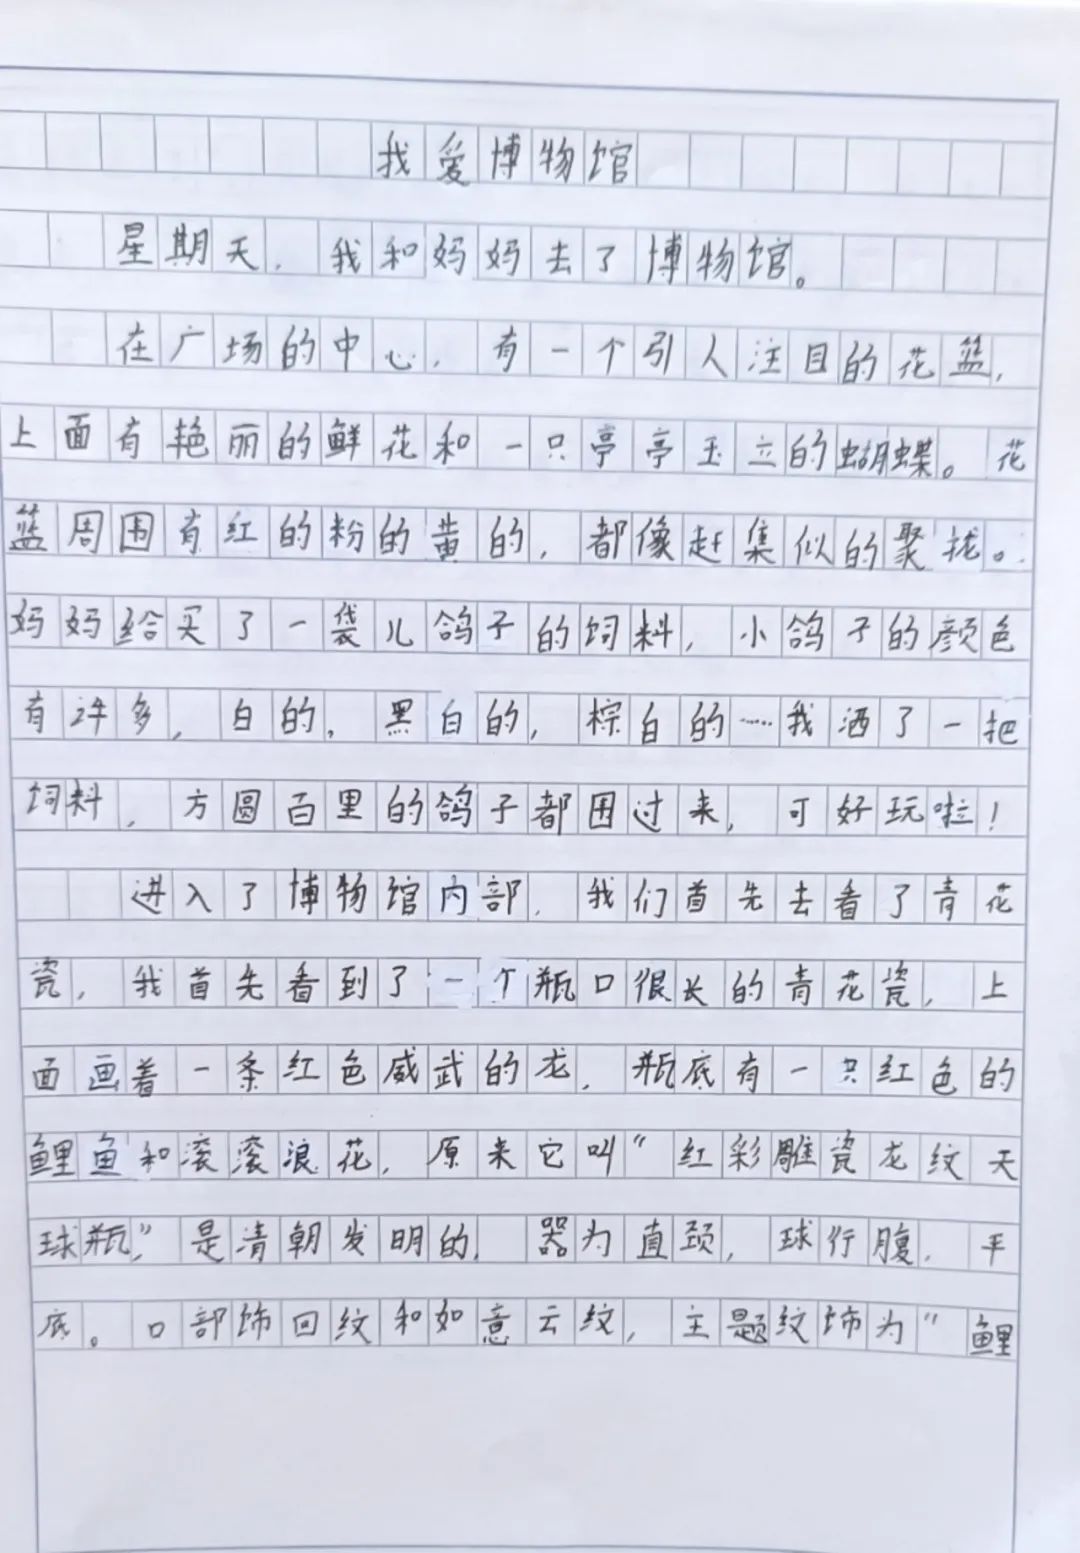 我爱博物馆
星期天，我和妈妈去了博物馆。
在广场的中心，有一个引人注目的花篮，
上面有艳丽的鲜花和一只亭亭玉立的蝴蝶。花
篮周围有红的粉的黄的，都像赶集似的聚拢。
妈妈给买了一袋儿鸽子的饲料，小鸽子的颜色
有许多，白的，黑白的，棕白的……我洒了一把
饲料，方圆百里的鸽子都围过来，可好玩啦！
进入了博物馆内部，我们首先去看了青花
瓷，我首先看到了一个瓶口很长的青花瓷，上
面画着一条红色威武的龙，瓶底有一只红色的
鲤鱼和滚滚浪花，原来它叫“红彩雕瓷龙纹天
球瓶”，是清朝发明的，器为直颈，球行腹，平
底。口部饰回纹和如意云纹，主题纹饰为“鲤